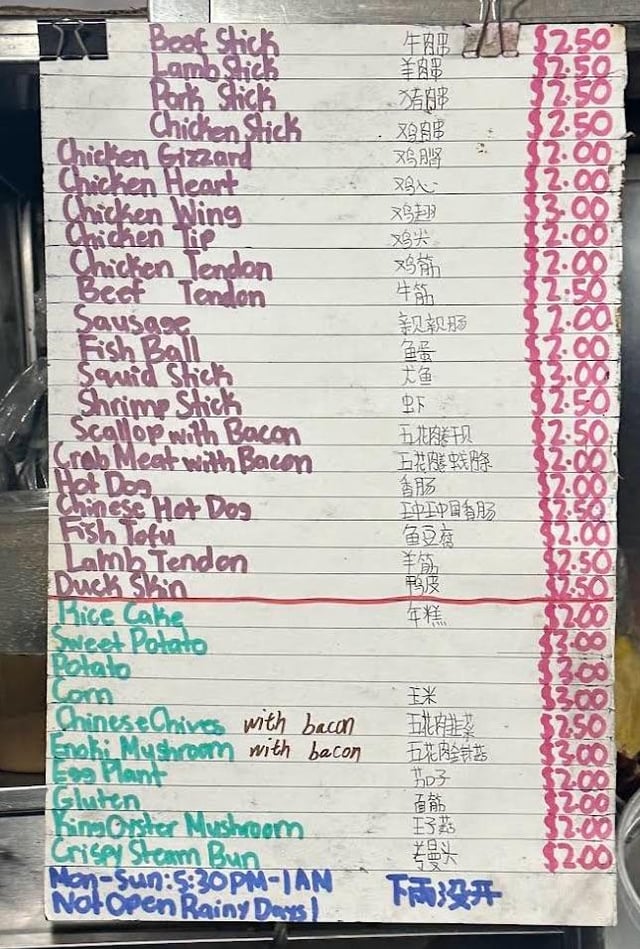 Beef Stick 牛肉串 $2.50
Lamb Stick 羊肉串 $2.50
Pork Stick 猪肉串 $2.50
Chicken Stick 鸡肉串 $2.50
Chicken Gizzard 鸡胗 $2.00
Chicken Heart 鸡心 $2.00
Chicken Wing 鸡翅 $3.00
Chicken Tip 鸡尖 $2.00
Chicken Tendon 鸡筋 $2.00
Beef Tendon 牛筋 $2.50
Sausage 亲亲肠 $2.00
Fish Ball 鱼蛋 $2.00
Squid Stick 尤鱼 $3.00
Shrimp Stick 虾 $2.50
Scallop with Bacon 五花肉卷干贝 $2.50
Crab Meat with Bacon $2.00
Hot Dog 香肠 $2.00
Chinese Hot Dog 香肠 $2.50
Fish Tofu 鱼豆腐 $2.00
Lamb Tendon 羊筋 $2.50
Duck Skin 鸭皮 $2.50
Rice Cake 年糕 $2.00
Sweet Potato $3.00
Potato $3.00
Corn 玉米 $3.00
Chinese Chives with bacon 五花肉韭菜 $2.50
Enoki Mushroom with bacon 五花肉金针菇 $3.00
Egg Plant 茄子 $2.00
Gluten 面筋 $2.00
King Oyster Mushroom 王子菇 $2.00
Crispy Steam Bun $2.00
Mon-Sun: 5:30PM-1AM 下雨没开
Not Open Rainy Days!